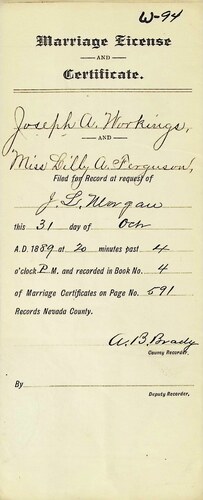 W-94
Marriage License
AND
Certificate.
Joseph A. Workings,
AND
Miss Lilly A. Ferguson,
Filed for Record at request of
J. L. Morgan
this 31 day of Oct
A.D. 1889 at 20 minutes past 4
o'clock P. M. and recorded in Book No. 4
of Marriage Certificates on Page No. 591
Records Nevada County.
A. B. Brady
County Recorder.
By
Deputy Recorder,